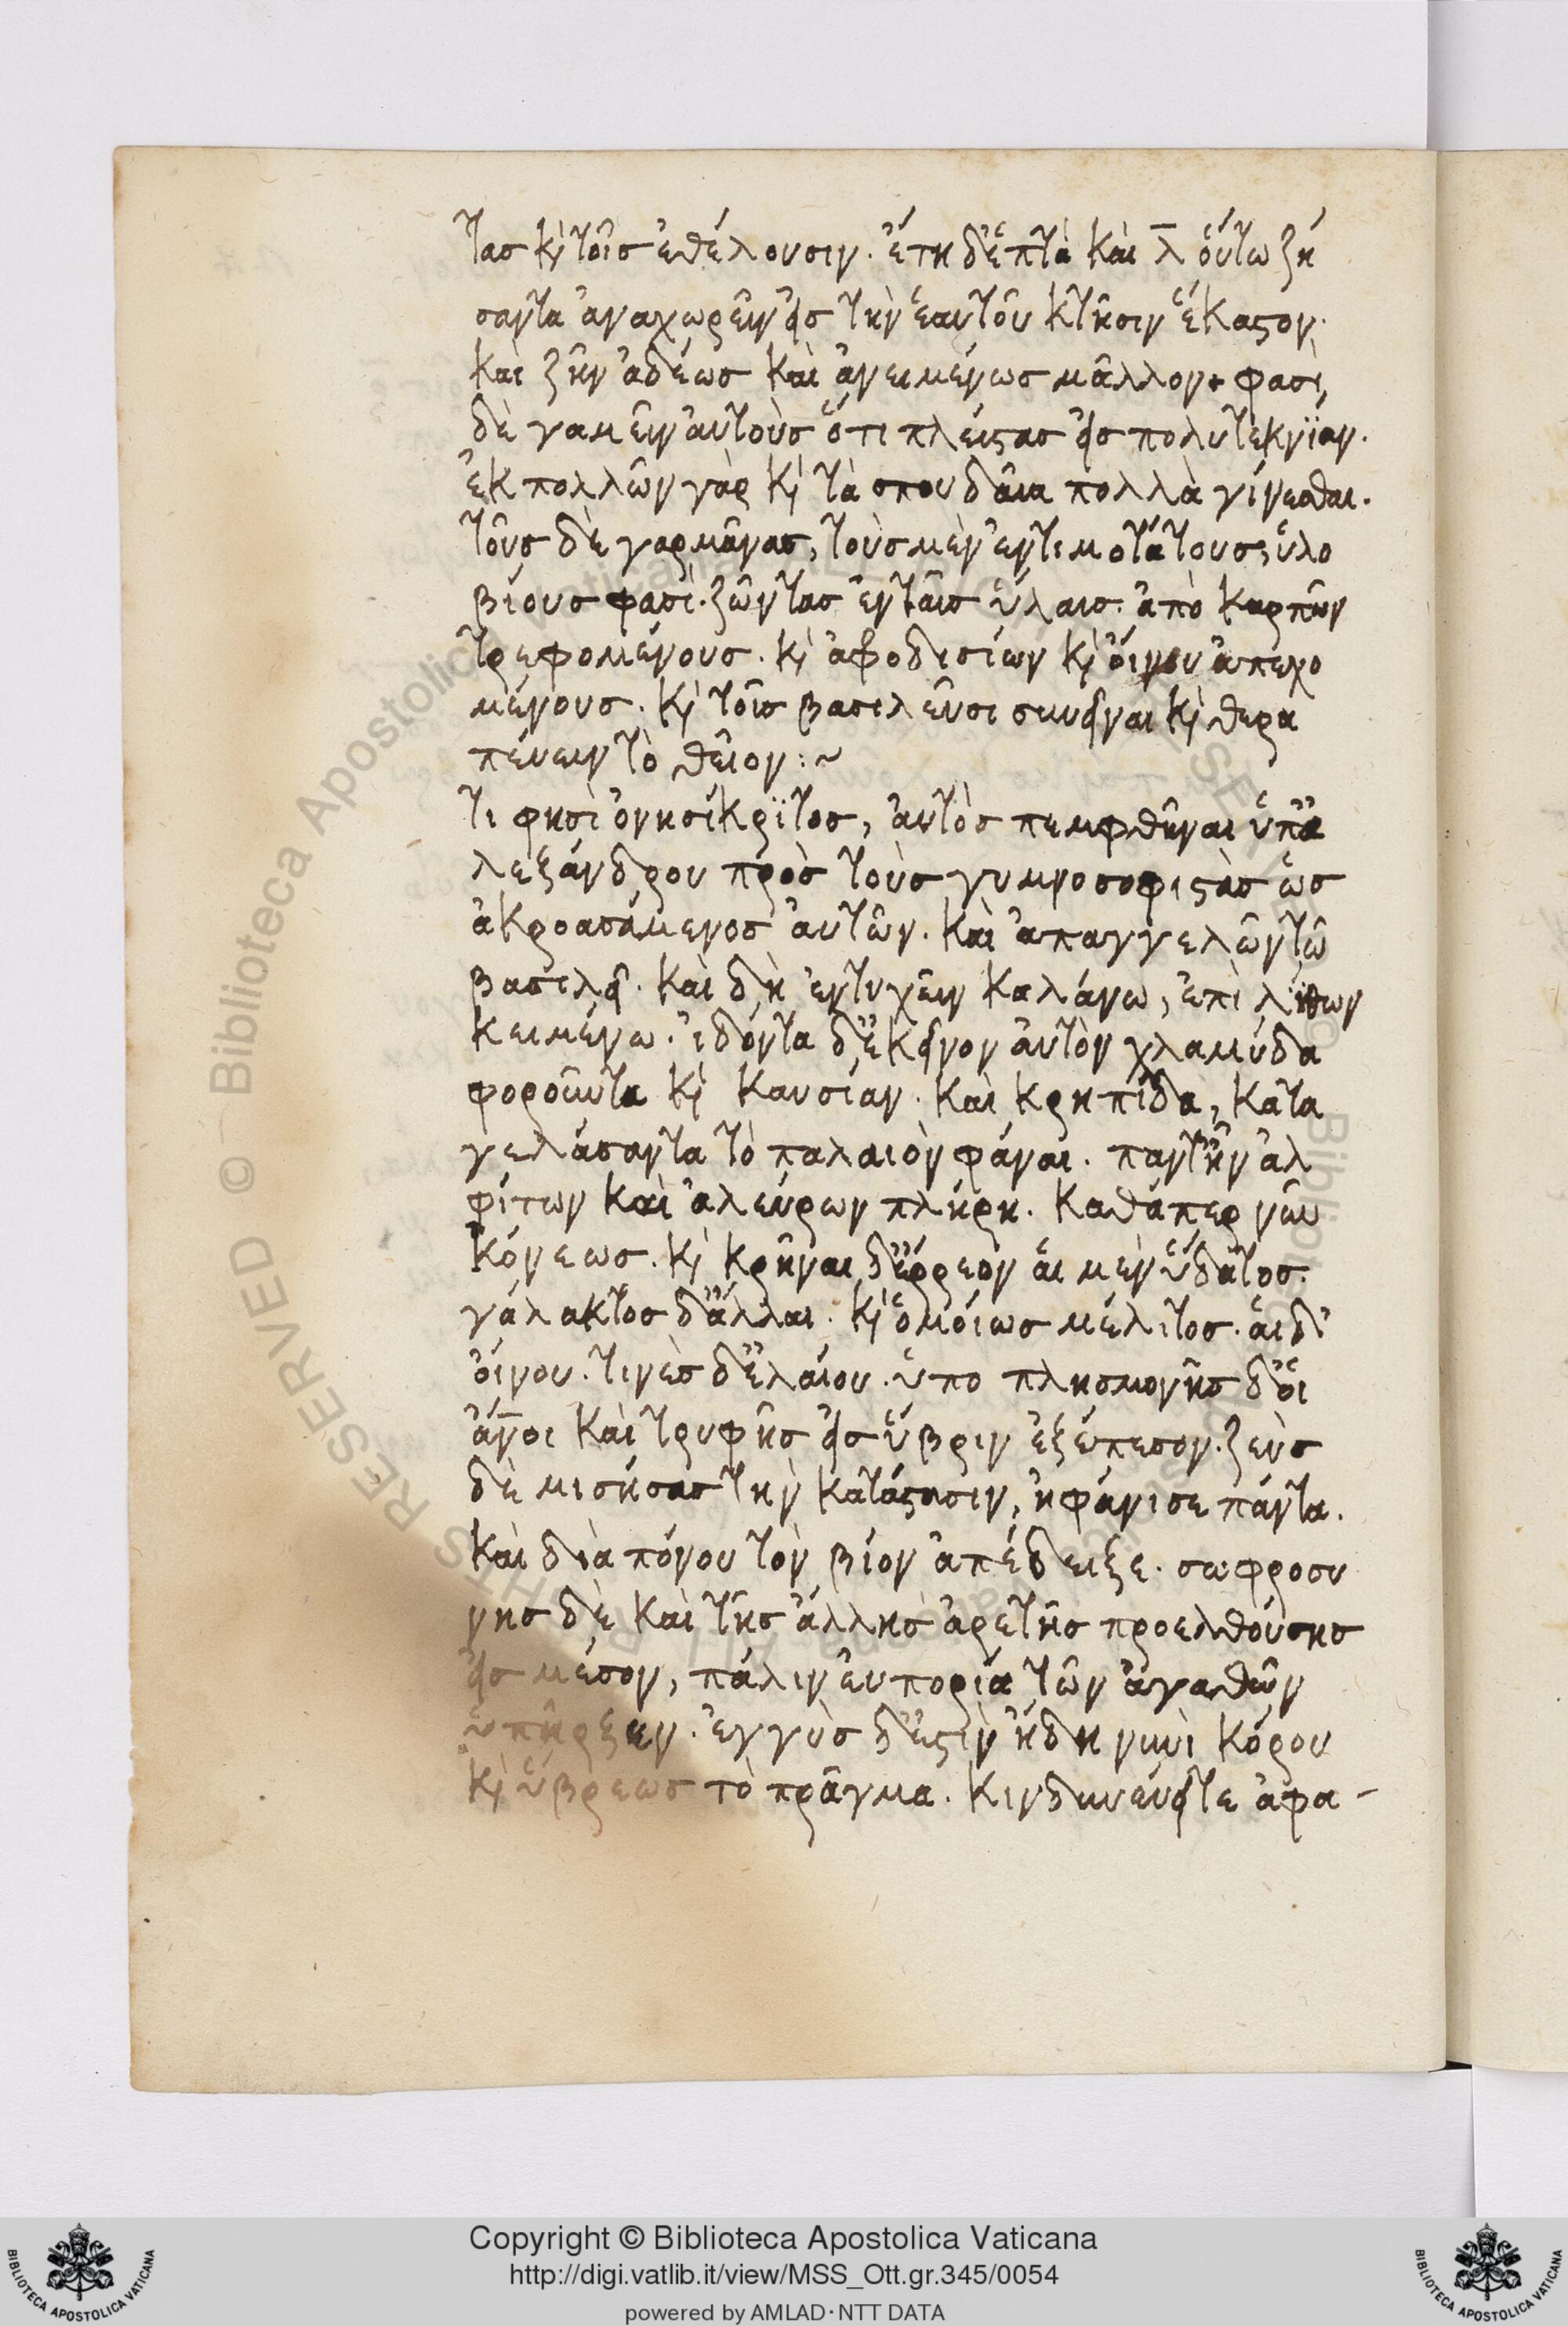 τας κὶ τοῖς ἐθέλουσιν. ἔτη δ' ἑπτὰ καὶ λ̅ οὕτω ζή
σαντα ἀναχωρεῖν εἰς τὴν ἑαυτοῦ κτῆσιν ἕκαστον.
καὶ ζῆν ἀδεῶς καὶ ἀνειμένως μᾶλλον. φασὶ
δὲ γαμεῖν αὐτοὺς ὅτι πλείστας εἰς πολυτεκνίαν.
ἐκ πολλῶν γὰρ κὶ τὰ σπουδαῖα πολλὰ γίνεσθαι.
τοὺς δὲ γαρμᾶνας, τοὺς μὲν ἐντιμοτάτους, ὑλο
βίους φασὶ. ζῶντας ἐν ταῖς ὕλαις. ἀπὸ καρπῶν
τρεφομένους. κὶ ἀφροδισίων κὶ οἴνου ἀπεχο
μένους. κὶ τοῖς βασιλεῦσι συνεῖναι κὶ θερα
πεύειν τὸ θεῖον:~
τι φησὶ ὀνησίκριτος, αὐτὸς πεμφθῆναι ὑπ' ἀ
λεξάνδρου πρὸς τοὺς γυμνοσοφιστὰς ὡς
ἀκροασάμενος αὐτῶν. καὶ ἀπαγγελῶν τῶ
βασιλεῖ. καὶ δὴ ἐντυχεῖν καλάνω, ἐπὶ λίθων
κειμένω. ἰδόντα δ' ἐκεῖνον αὐτὸν χλαμύδα
φοροῦντα κὶ καυσίαν. καὶ κρηπῖδα, κατα
γελάσαντα τὸ παλαιὸν φάναι. παντ' ἦν ἀλ
φίτων καὶ ἀλεύρων πλήρη. καθάπερ νῦν
κόνεως. κὶ κρῆναι δ' ἔρρεον αἱ μὲν ὕδατος.
γάλακτος δ' ἄλλαι. κὶ ὁμοίως μέλιτος. αἱ δ'
οἴνου. τινὲς δ' ἐλαίου. ὑπο πλησμονῆς δ' οἱ
ἄν̅οι καὶ τρυφῆς εἰς ὕβριν ἐξέπεσον. ζεὺς
δὲ μισήσας τὴν κατάστασιν, ἠφάνισε πάντα.
καὶ διὰ πόνου τὸν βίον ἀπέδειξε. σωφροσύ
νης δὲ καὶ τῆς ἄλλης ἀρετῆς προελθούσης
εἰς μέσον, πάλιν εὐπορία τῶν ἀγαθῶν
ὑπῆρξεν. ἐγγὺς δ' ἐστὶν ἤδη νυνὶ κόρου
κὶ ὕβρεως τὸ πρᾶγμα. κινδυνεύει τε ἀφα-
Copyright © Biblioteca Apostolica Vaticana
http://digi.vatlib.it/view/MSS_Ott.gr.345/0054
powered by AMLAD·NTT DATA